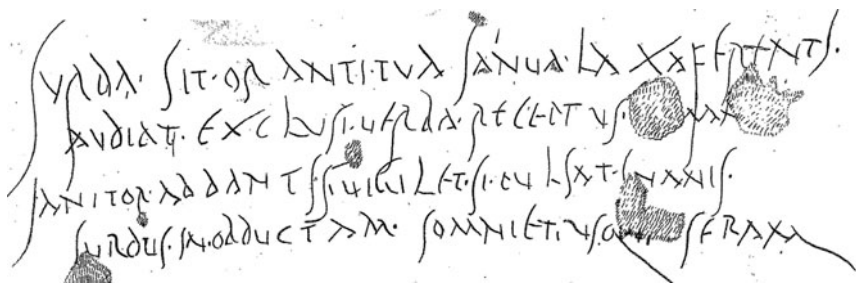 SVRDA· SIT· ORANTI·TVA IANVA· LAXA FERENTI·
AVDIAT· EXCLVSI·VERBA·RECEPTVS·
IANITOR·AD DANTIS·VIGILET·SI·PVLSAT·INANIS·
SVRDVS·IN·OBDVCTAM· SOMNIET· SERAM